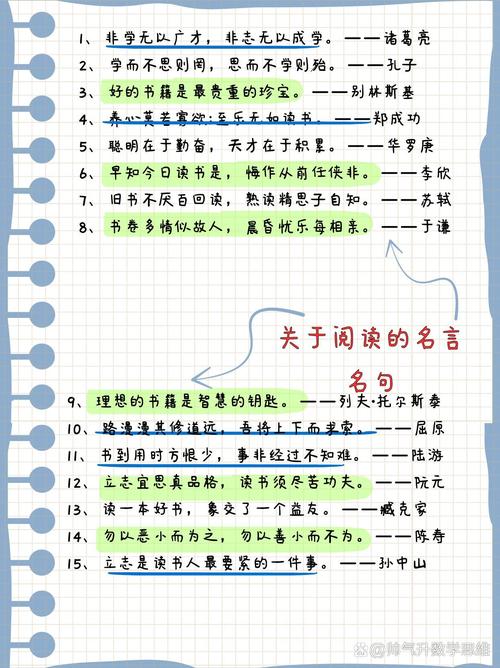 1、 非学无以广才，非志无以成学。 ——诸葛亮
2、 学而不思则罔，思而不学则殆。——孔子
3、 好的书籍是最贵重的珍宝。 ——别林斯基
4、 养心莫若寡欲；至乐无如读书。——郑成功
5、 聪明在于勤奋，天才在于积累。——华罗庚
6、 早知今日读书是，悔作从前任侠非。——李欣
7、 旧书不厌百回读，熟读精思子自知。——苏轼
8、 书卷多情似故人，晨昏忧乐每相亲。——于谦
关于阅读的名言
名句
9、 理想的书籍是智慧的钥匙。 ——列夫·托尔斯泰
10、 路漫漫其修道远，吾将上下而求索。——屈原
11、 书到用时方恨少，事非经过不知难。——陆游
12、 立志宜思真品格，读书须尽苦功夫。——阮元
13、 读一本好书，象交了一个益友。——臧克家
14、 勿以恶小而为之，勿以善小而不为。——陈寿
15、 立志是读书人最要紧的一件事。——孙中山
帅气升数学思维